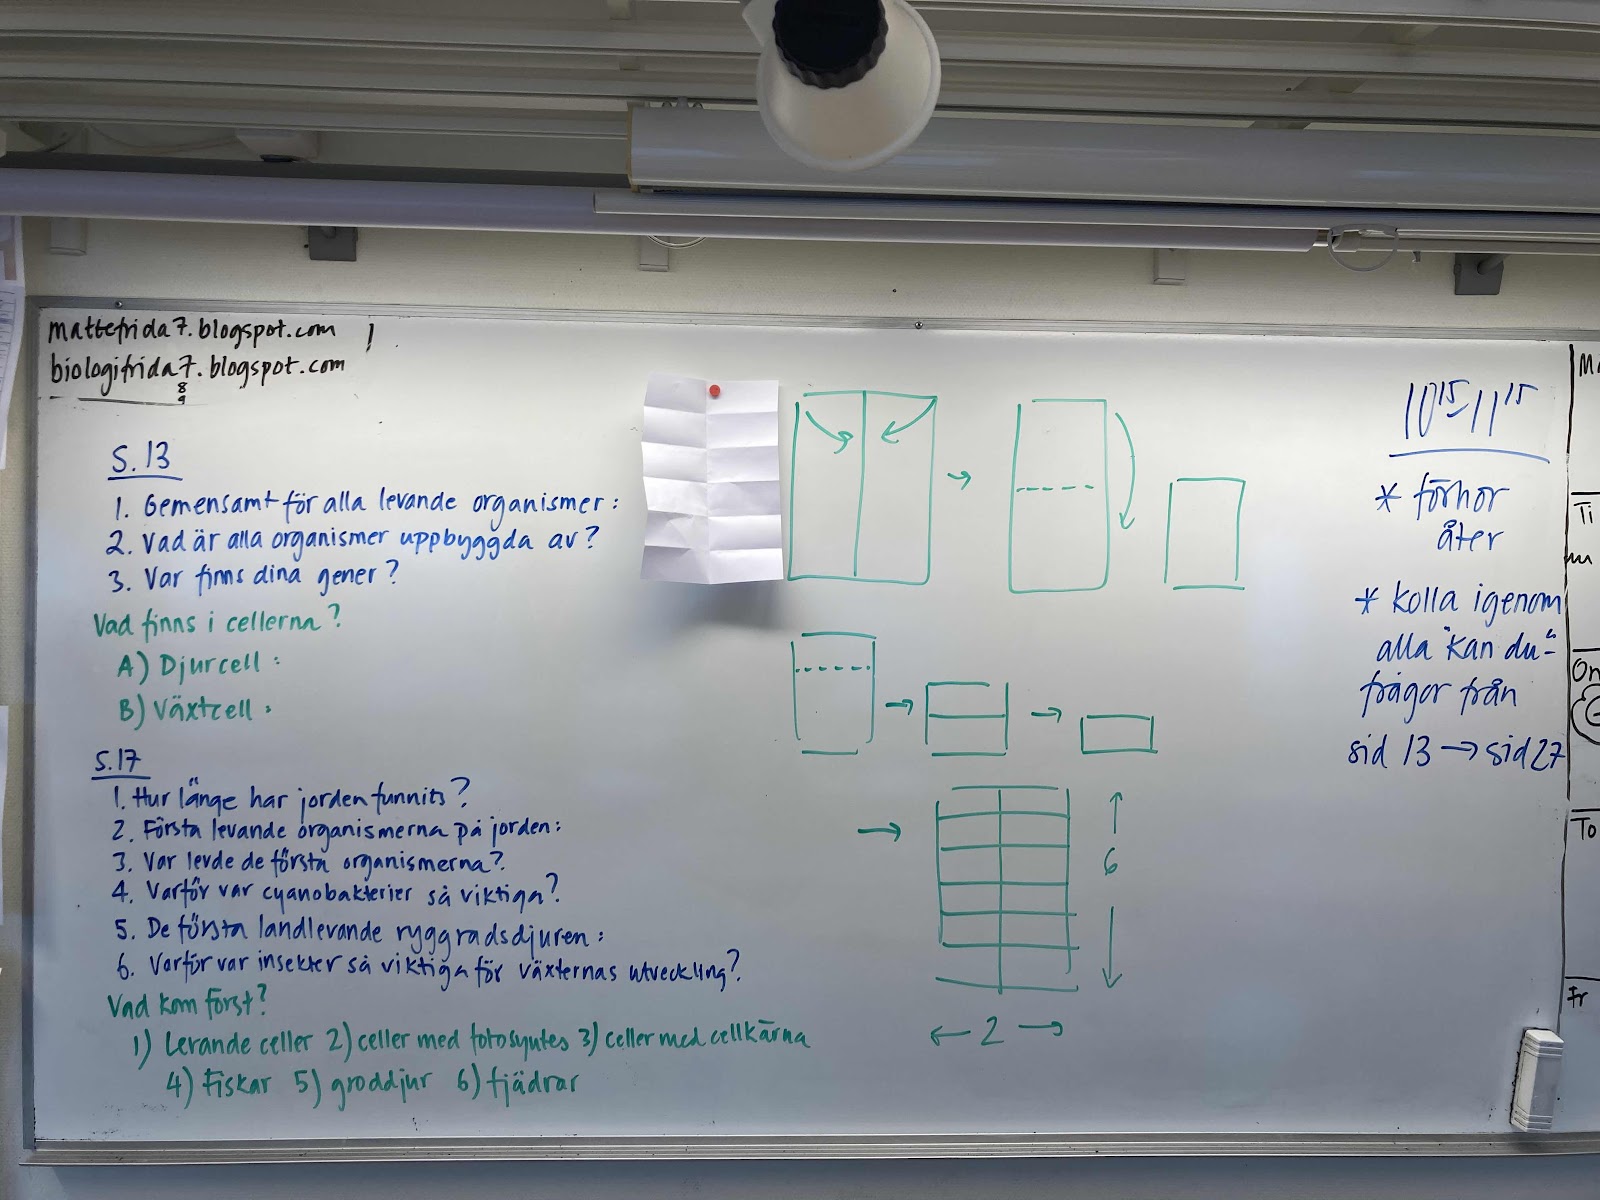 mattefrida7.blogspot.com !
biologifrida7.blogspot.com
8
9
S. 13
1. Gemensamt för alla levande organismer:
2. Vad är alla organismer uppbyggda av?
3. Var finns dina gener?
Vad finns i cellerna?
A) Djurcell:
B) Växtcell:
S. 17
1. Hur länge har jorden funnits?
2. Första levande organismerna på jorden:
3. Var levde de första organismerna?
4. Varför var cyanobakterier så viktiga?
5. De första landlevande ryggradsdjuren:
6. Varför var insekter så viktiga för växternas utveckling?
Vad kom först?
1) Levande celler 2) celler med fotosyntes 3) celler med cellkärna
4) Fiskar 5) groddjur 6) fjädrar
6
← 2 →
10 15 - 11 15
* förhör
åter
* kolla igenom
alla "kan du"-
frågor från
sid 13 → sid 27
Ti
On
To
Fr